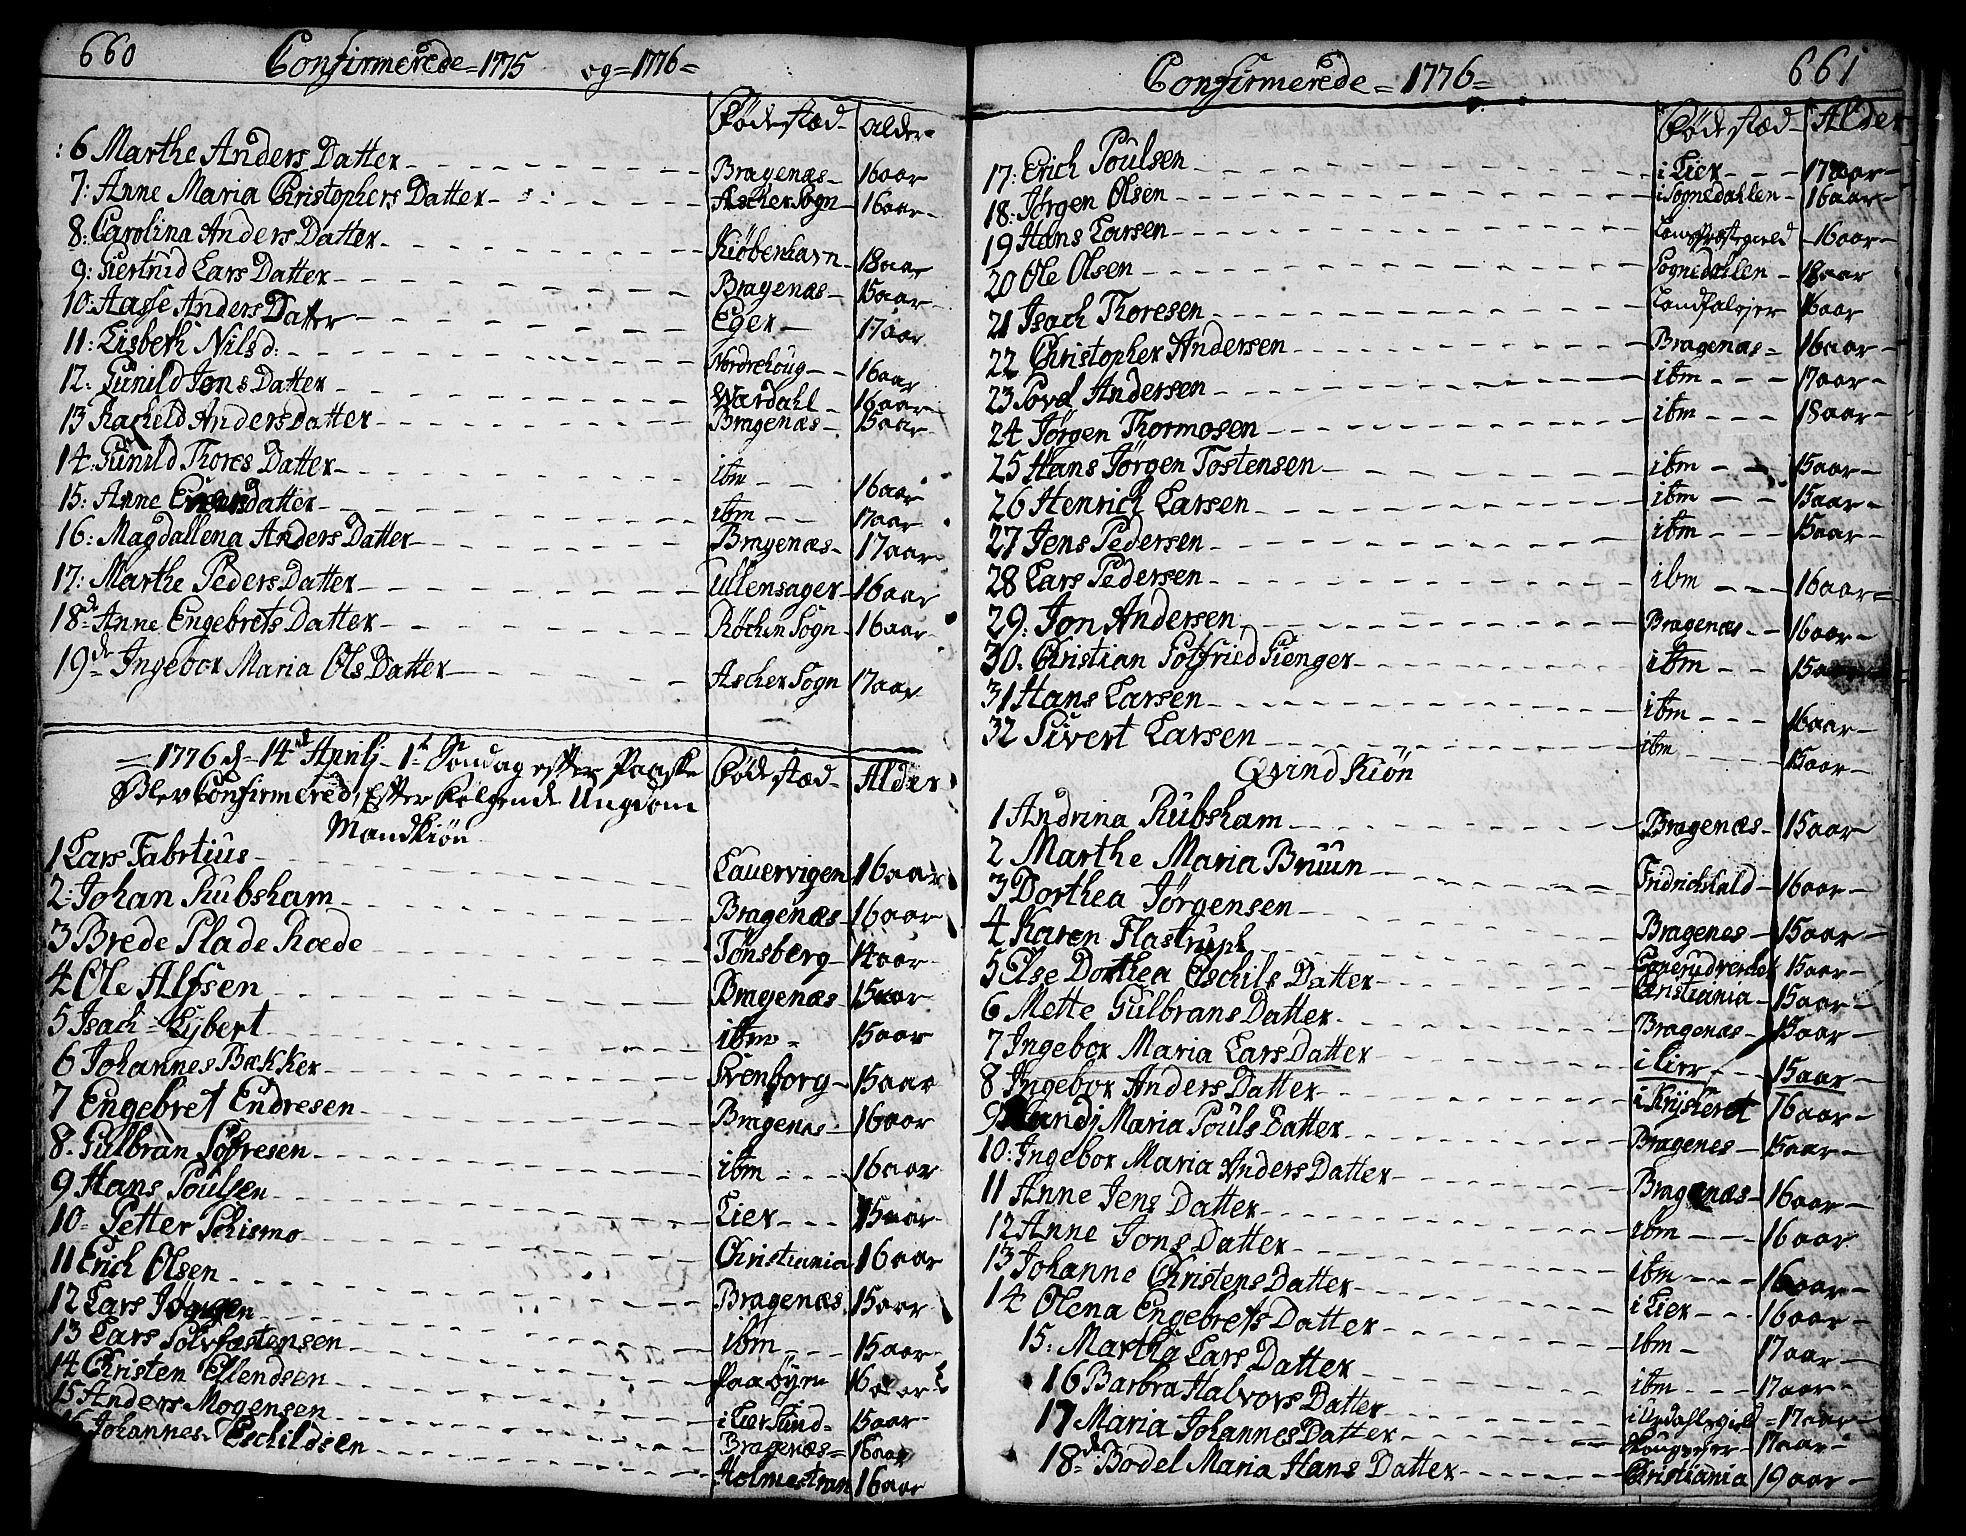 660 Confirmerede = 1775 og = 1776 =
Fødestæd - Alder -
: 6 Marthe Anders Datter - Bragenæs - 16 aar
7: Anne Maria Christophers Datter - Ascher Sogn - 16 aar -
8: Carolina Anders Datter - Kiøbenhavn - 18 aar
9: Giertrud Lars Datter - Bragenæs - 15 aar
10: Aasse Anders Datter - Eger - 17 aar
11: Lisbeth Nils d: - Nordrehoug - 16 aar
12: Gunild Jons Datter - Wardahl - 16 aar
13 Racheld Anders datter - Bragenæs - 15 aar
14: Gunild Thores Datter - ibm - 16 aar
15: Anne datter - ibm - 17 aar
16: Magdallena Anders Datter - Bragenæs - 17 aar
17: Marthe Peders Datter - Ullensager - 16 aar
18de Anne Engebrets Datter - Røchen Sogn - 16 aar
19de Ingebor Maria Ols Datter - Ascher Sogn 17 aar
= 1776 d = 14de Aprilj - 1te Søndag efter Paaske Fødestæd - Alder
Blev Confirmered, Efter følgende Ungdom
Mandkiøn
1 Lars Fabrtius - Lauervigen 16 aar
2: Johan Rubsham - Bragenæs - 16 aar
3 Brede Plade Roede Tønsberg - 14 aar
4 Ole Alfsen - Bragenæs 15 aar
5 Isach = Lybert - ibm - 15 aar
6 Johannes Bækker - Svenborg - 15 aar
7 Engebret Endresen - Bragenes - 16 aar
8 - Gulbran Sofresen - ibm - 16 aar
9 Hans Poulsen - Lier - 15 aar
10 - Petter Schismo - Christiania 16 aar
11 Erich Olsen - Bragenæs 15 aar
12 Lars - ibm - 15 aar
13 Lars Solvfæstensen - Paa Øyen 16 aar
14 Christen Ellendsen - i Lier Sund - 15 aar
15 Anders Mogensen - Bragenæs = 16 aar
16 Johannes Eschildsen - Holmestran 16 aar
Confirmerede = 1776 = 661
Fødestæd - Alder
17: Erich Poulsen - i Lier - 17 aar -
18: Jørgen Olsen - i Sognedahlen - 16 aar -
19 Hans Larsen - - 16 aar -
20 Ole Olsen - Sognedahlen - 18 aar
21 Isach Thoresen - Landfaløjer 16 aar
22 Christopher Andersen - Bragenæs - 16 aar -
23 Povel Andersen - ibm - 17 aar -
24 Jørgen Thormosen - ibm - 18 aar -
25 Hans Jørgen Tostensen - ibm - 15 aar -
26 Henrich Larsen - ibm - 15 aar -
27 Jens Pedersen - ibm - 15 aar -
28 Lars Pedersen - ibm - 16 aar =
29: Jon Andersen - Bragenæs - 16 aar -
30. Christian Gotfried Gienger - ibm - 15 aar
31 Hans Larsen - ibm - 16 aar -
32 Sivert Larsen - ibm - 15 aar -
Qvind Kiøn
1 Andrina Rubsham - Bragenæs - 15 aar -
2 Marthe Maria Bruun - Fridrichstald - 16 aar -
3 Dorthea Jørgensen - Bragenes - 15 aar -
4 Karen Flastruph - 15 aar -
5 Else Dorthea Eschils Datter - Christiania - 15 aar -
6 Mette Gulbrans Datter - Bragenæs - 15 aar -
7 Ingebor Maria Lars Datter - i Lier - 15 aar -
8 Ingebor Anders Datter - 16 aar -
9 Randj Maria Pouls Datter - Bragenes - 15 aar -
10: Ingebor Maria Anders Datter - Bragenæs - 16 aar -
11 Anne Jens Datter - ibm - 16 aar
12 Anne Jons Datter - ibm - 16 aar -
13 Johanne Christens Datter - i Lier - 16 aar -
14 Olena Engebrets Datter - ibm - 17 aar -
15: Martha Lars Datter - ibm - 17 aar -
16 Barbra Halvors Datter - = 17 aar -
17 Maria Johannes Datter - - 17 aar -
18de Bodel Maria Hans Datter - Christiania 19 aar -